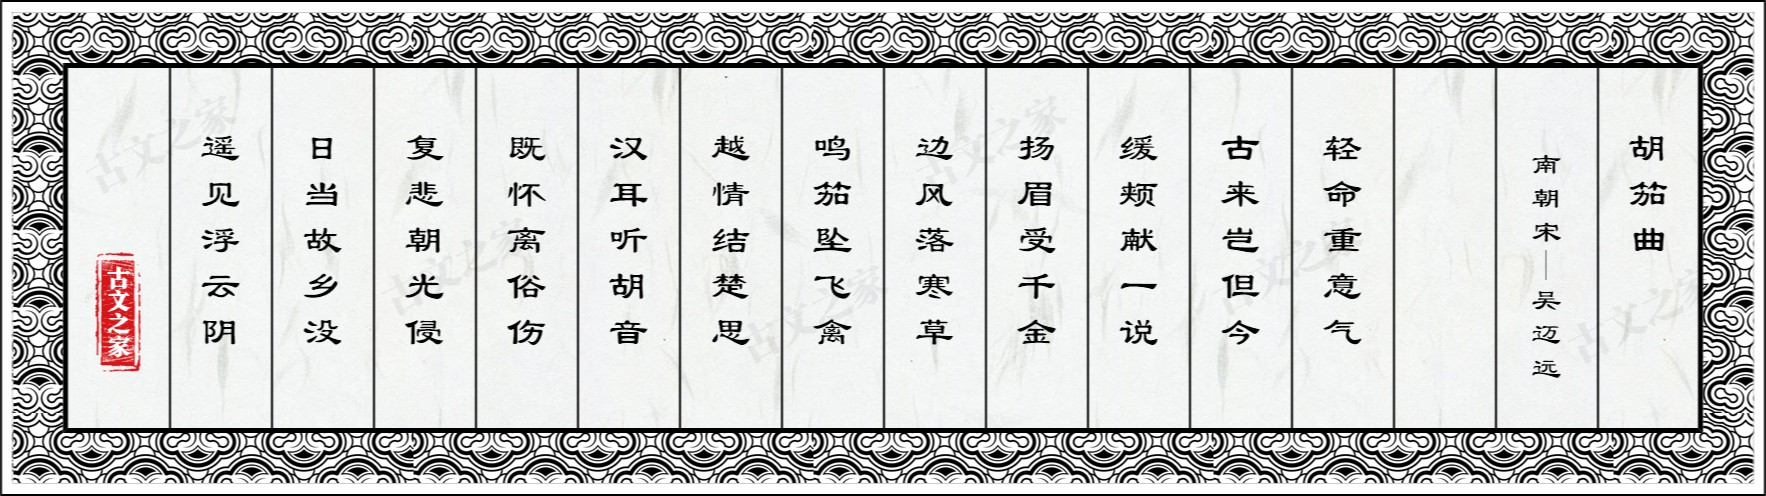 胡笳曲
南朝宋—吴迈远
轻命重意气
古来岂但今
缓颊献一说
扬眉受千金
边风落寒草
鸣笳坠飞禽
越情结楚思
汉耳听胡音
既怀离俗伤
复悲朝光侵
日当故乡没
遥见浮云阴
古文之家